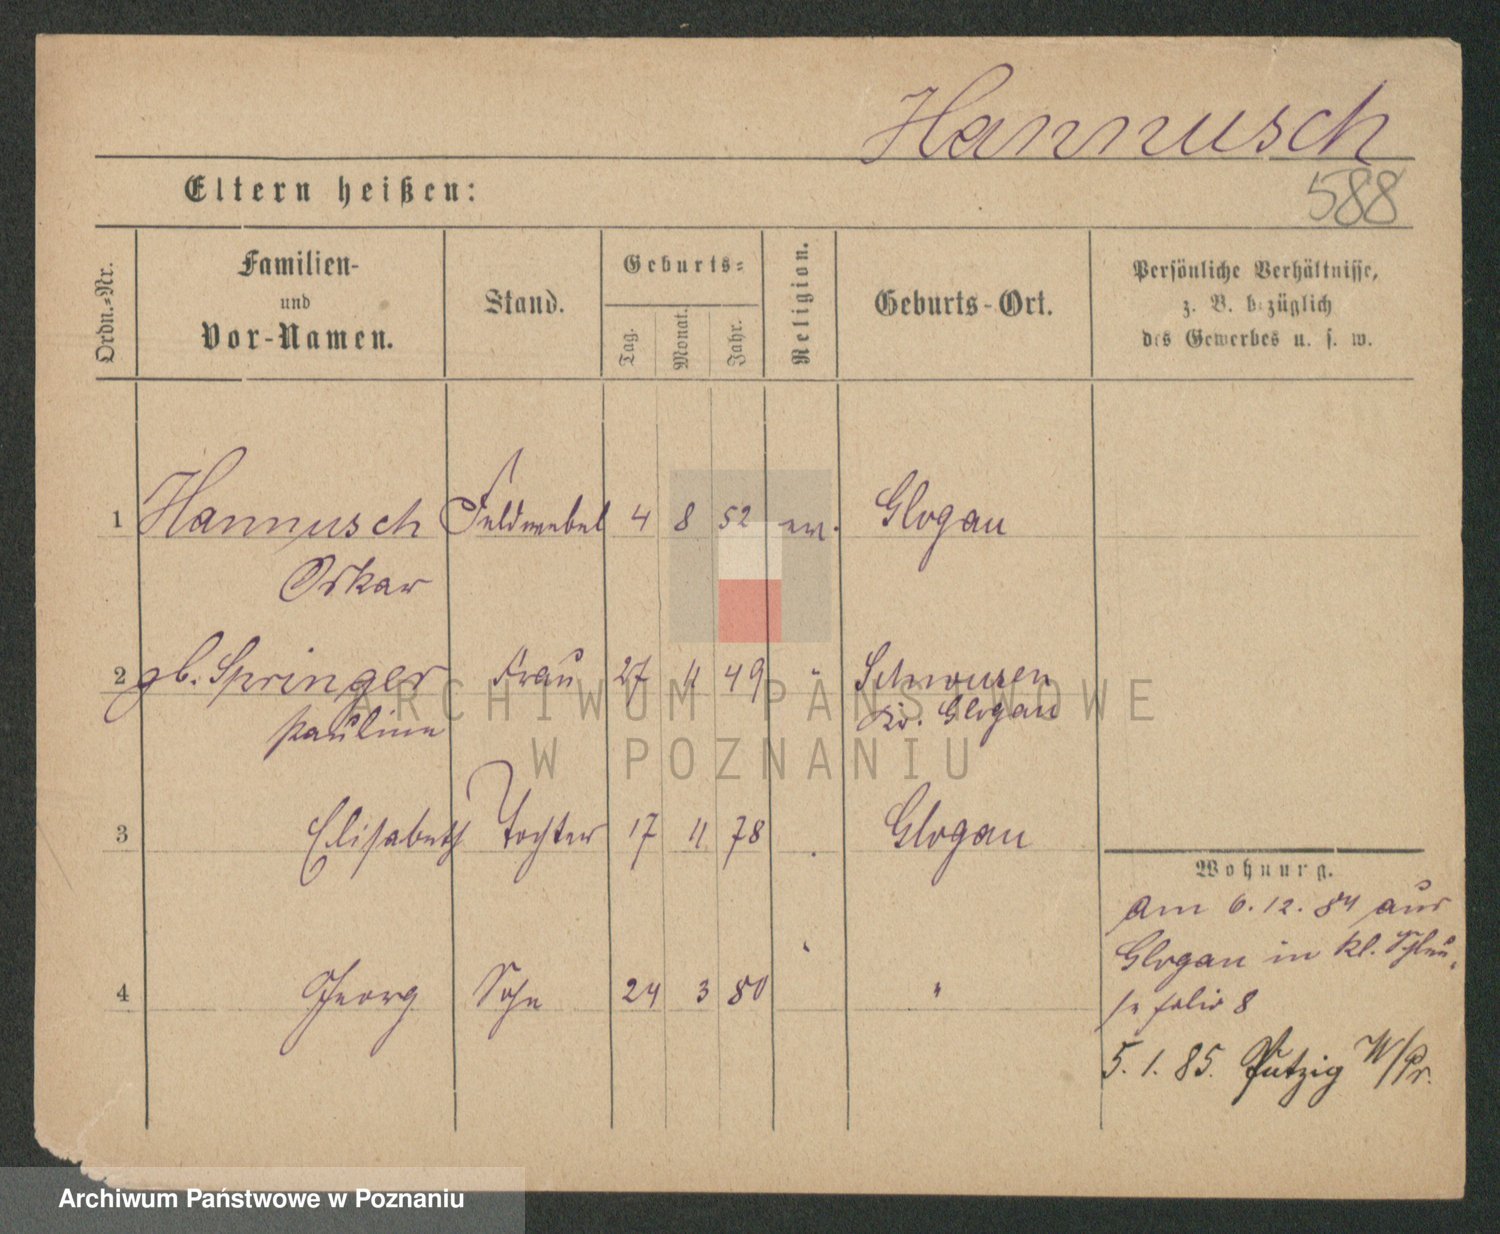 Hannusch
Eltern heißen:
588
Ordn.=Nr.
Familien-
und
Vor-Namen.
Stand.
Geburts=
Tag.
Monat.
Jahr.
Religion.
Geburts-Ort.
Persönliche Verhältnisse,
z. B. bezüglich
des Gewerbes u. s. w.
1 Hannusch Feldwebel 4 8 52 ev. Glogau
Oskar
2 gb. Springer Frau 27 11 49 " Schwusen
Pauline Kr. Glogau
3 Elisabeth Tochter 17 11 78 Glogau
Wohnung.
am 6.12.84 aus
Glogau in kl.
4 Georg Sohn 24 3 80 "
folio 8
5.1.85. Putzig W/Pr.
ARCHIWUM PAŃSTWOWE
W POZNANIU
Archiwum Państwowe w Poznaniu